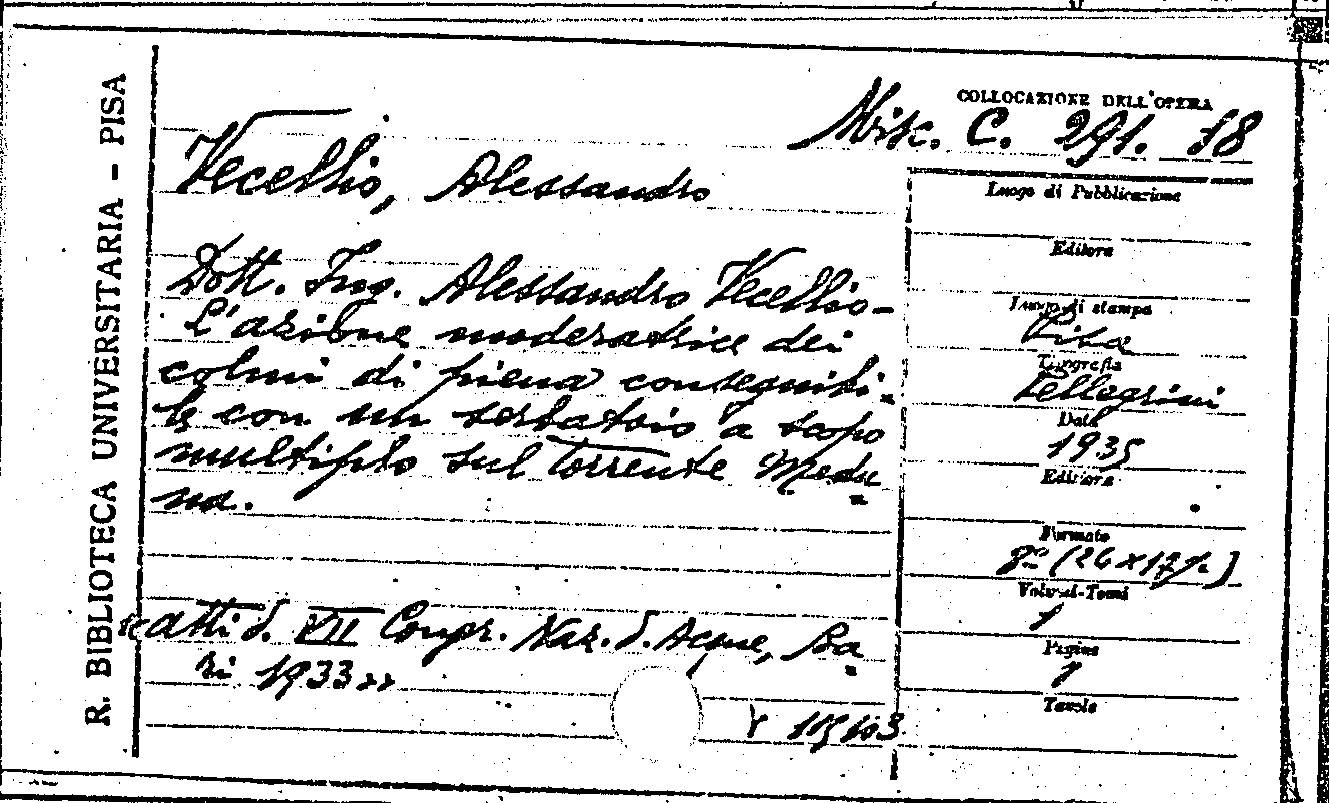 R. BIBLIOTECA UNIVERSITARIA - PISA
COLLOCAZIONE DELL'OPERA
Misc. C. 291. 18
Vecellio, Alessandro
Dott. Ing. Alessandro Vecellio-
L'azione moderatrice dei
colmi di piena conseguibi-
le con un serbatoio a scopo
multiplo sul torrente Medu-
na.
«Atti d. VII Congr. Naz. d. Acque, Ba-
ri 1933»
Luogo di Pubblicazione
Editore
Luogo di stampa
Pisa
Tipografia
Pellegrini
Data
1935
Editore
Formato
8° (26x17
Volumi-Tomi
1
Pagine
Tavole